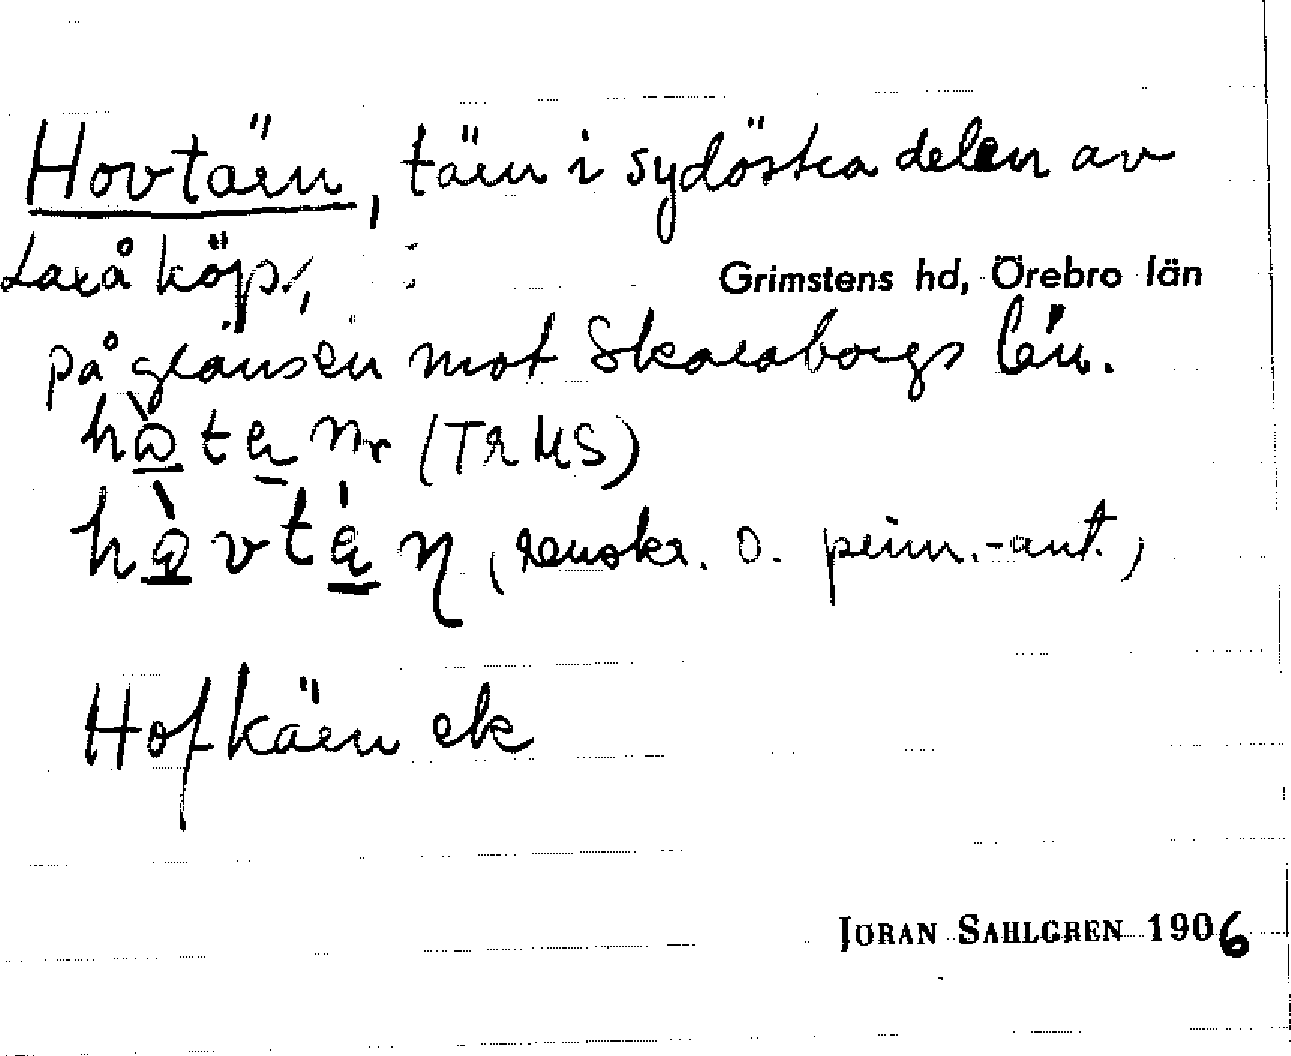 Hovtärn, tärn i sydöstra delen av
Laxå köp.,
Grimstens hd, Örebro län
på gränsen mot Skaraborgs län.
(TRMS)
renskr. o. prim.-ant.,
Hofkärn ek
JORAN SAHLGREN 1906